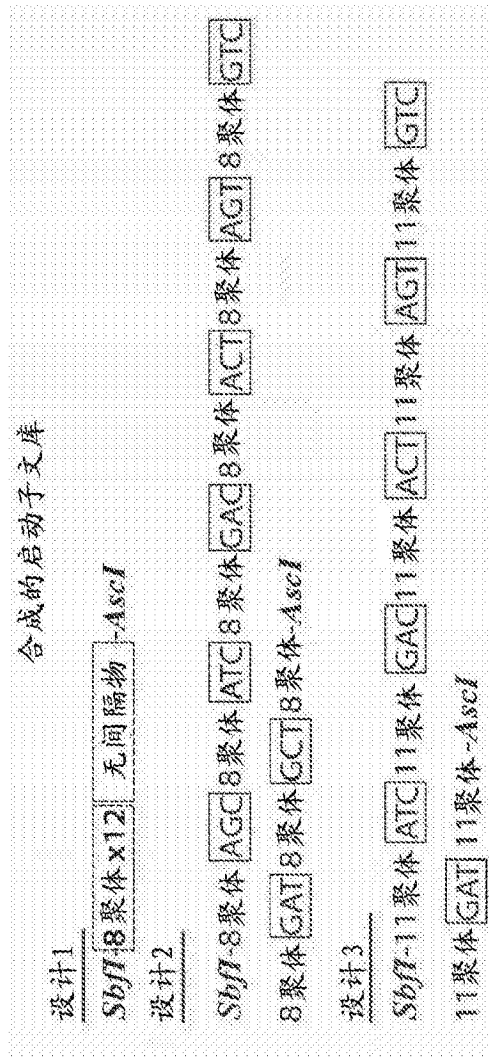 合成的启动子文库
设计1
SbfI-8聚体x12 无间隔物-AscI
设计2
SbfI-8聚体 AGC 8聚体 ATC 8聚体 GAC 8聚体 ACT 8聚体 AGT 8聚体 GTC
8聚体 GAT 8聚体 GCT 8聚体-AscI
设计3
SbfI-11聚体 ATC 11聚体 GAC 11聚体 ACT 11聚体 AGT 11聚体 GTC
11聚体 GAT 11聚体-AscI